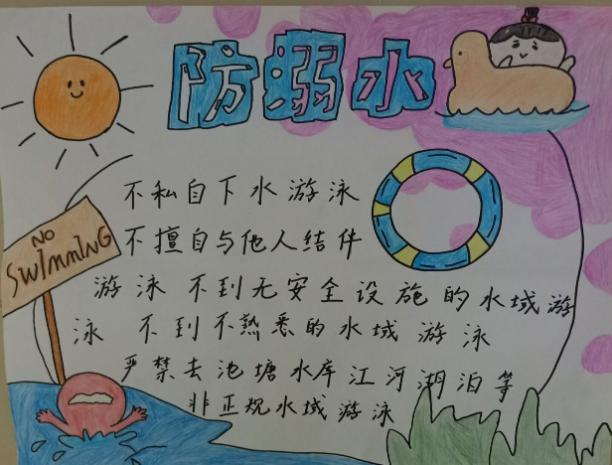 防溺水
NO
SWIMMING
不私自下水游泳
不擅自与他人结伴
游泳 不到无安全设施的水域游
泳 不到不熟悉的水域游泳
严禁去池塘水库江河湖泊等
非正规水域游泳